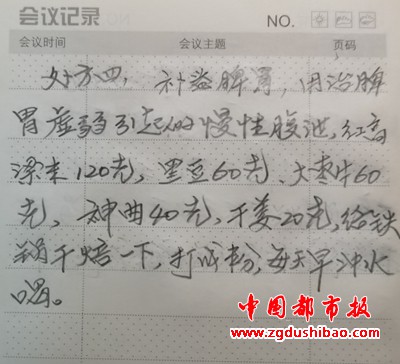 会议记录 NO.
会议时间 会议主题 页码
好方四，补益脾胃，用治脾
胃虚弱引起的慢性腹泄，红高
粱米120克，黑豆60克、大枣片60
克，神曲40克，干姜20克，给铁
锅干焙一下，打成粉，每天早冲水
喝。
中国都市报
www.zgdushibao.com